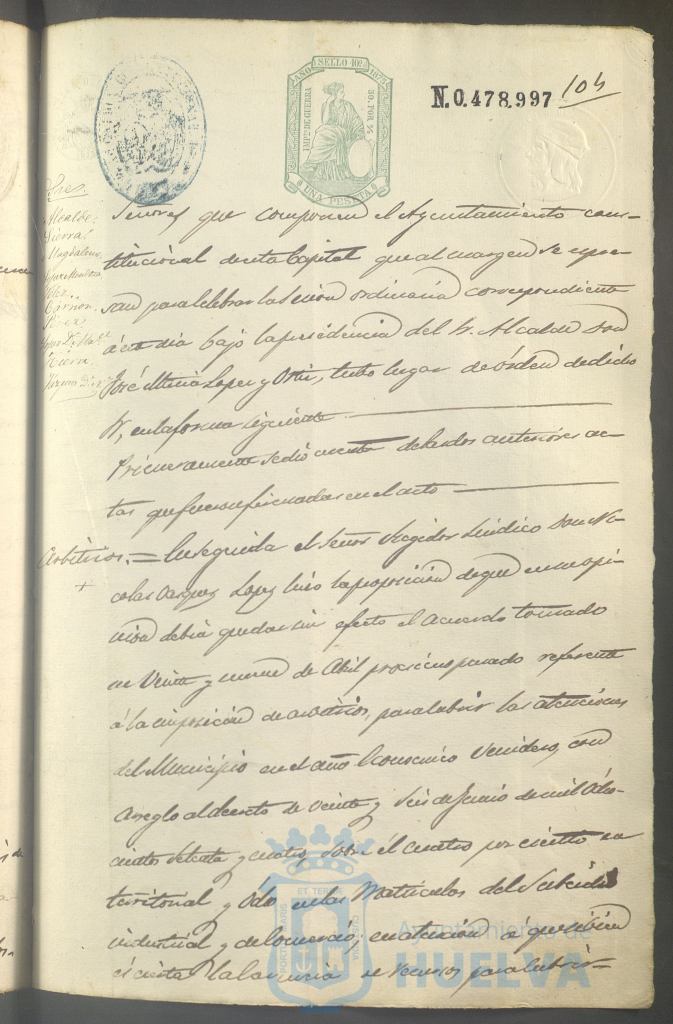 AÑO SELLO 10º 1875
IMPTO DE GUERRA
50 POR %
UNA PESETA
N.0.478.997
104
Sres.
Alcalde
Sierra
Magdaleno
Carrion
Perez
Sierra
Señores que componen el Ayuntamiento cons-
titucional de esta Capital que al margen se espre-
san para celebrar la Sesion ordinaria correspondiente
á este dia bajo la presidencia del Sr. Alcalde Don
José Maria Lopez y Ortiz, tubo lugar de órden de dicho
Sr, en la forma siguiente
Primeramente se dió cuenta de las dos anteriores ac-
tas que fueron firmadas en el acto
Arbitrios. = Enseguida el Señor Regidor Sindico Don Ni-
colas Vazquez Lopez hizo la proposicion de que en su opi-
nion debia quedar sin efecto el acuerdo tomado
en Veinte y nueve de Abril proximo pasado referente
á la imposicion de arbitrios, para cubrir las atenciones
del Municipio en el año Economico Venidero, con
arreglo al decreto de Veinte y Seis de Junio de mil Ocho-
cientos Setenta y cuatro, sobre el cuatro por ciento en
territorial y Ocho en las Matriculas del Subsidio
industrial y de Comercio; en atencion á que si bien
es cierta la carencia de recursos para cubrir
PORTUS MARIS ET TERRE CUSTODIA
Ayuntamiento de
HUELVA